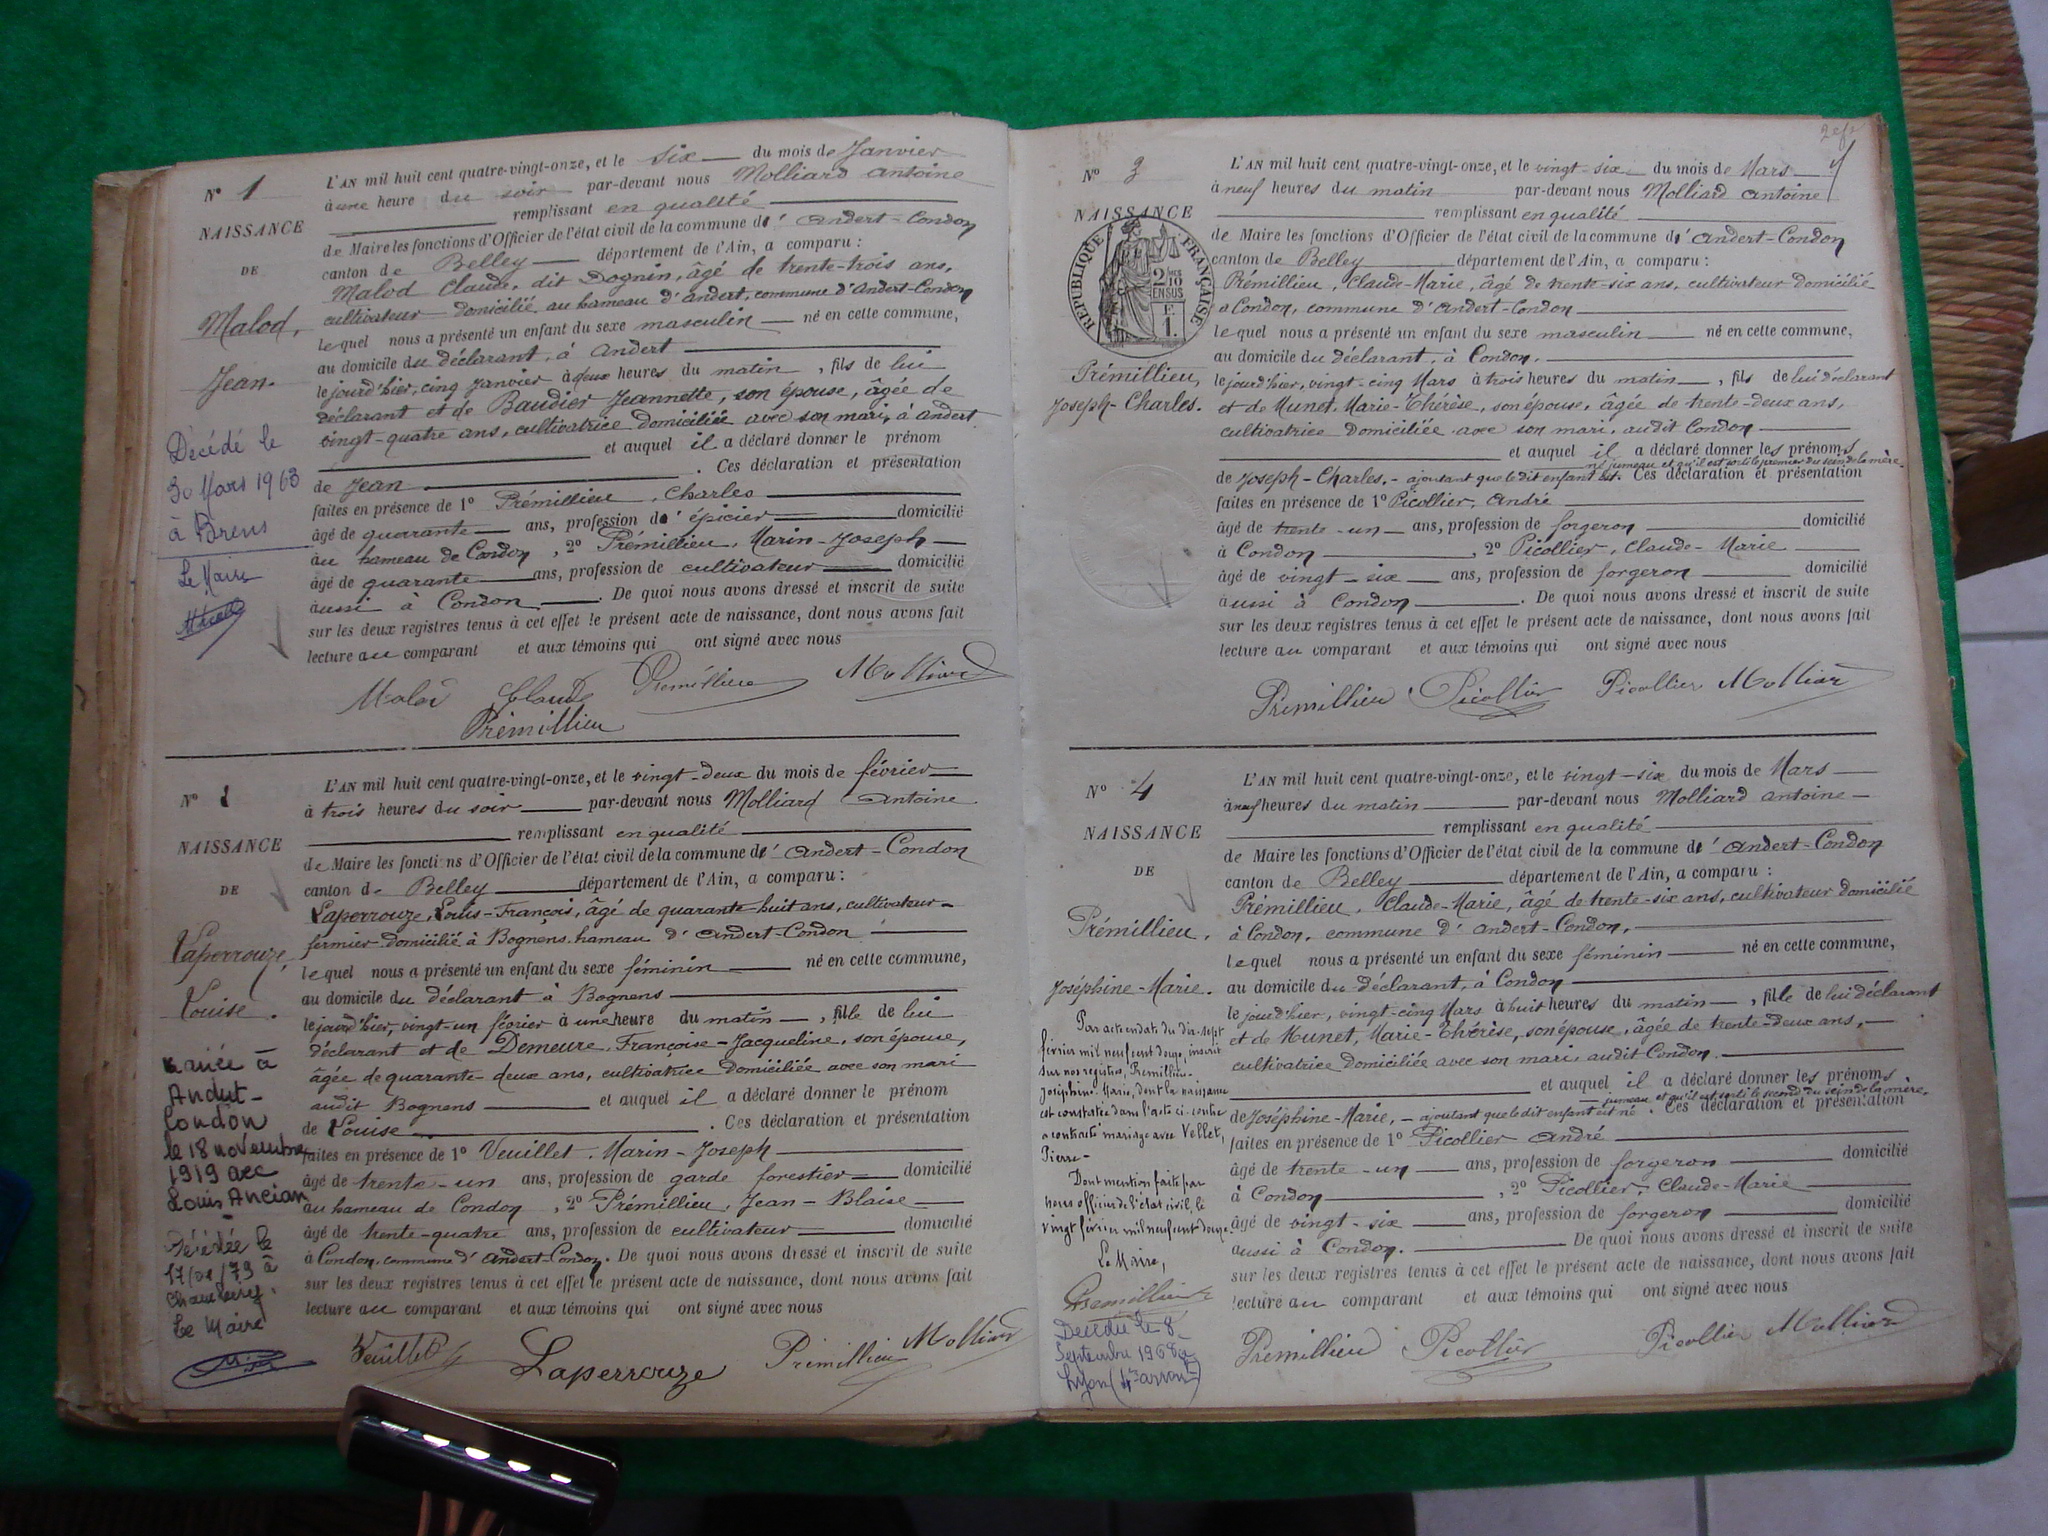 N° 1
NAISSANCE
DE
Malod,
Jean.
Décédé le
30 Mars 1963
à Brens
Le Maire
L'AN mil huit cent quatre-vingt-onze, et le six du mois de Janvier
à une heure du soir par-devant nous Molliard Antoine
remplissant en qualité
de Maire les fonctions d'Officier de l'état civil de la commune d' Andert-Condon
canton de Belley département de l'Ain, a comparu :
Malod Claude, dit Dognin, âgé de trente-trois ans,
cultivateur domicilié au hameau d'Andert, commune d'Andert-Condon
lequel nous a présenté un enfant du sexe masculin né en cette commune,
au domicile du déclarant, à Andert
le jourd'hier, cinq Janvier à deux heures du matin, fils de lui
déclarant et de Baudier Jeannette, son épouse, âgée de
vingt-quatre ans, cultivatrice domiciliée avec son mari, à Andert
et auquel il a déclaré donner le prénom
de Jean. Ces déclaration et présentation
faites en présence de 1° Prémillieu, Charles
âgé de quarante ans, profession d' épicier domicilié
au hameau de Condon, 2° Prémillieu, Marin-Joseph
âgé de quarante ans, profession de cultivateur domicilié
aussi à Condon. De quoi nous avons dressé et inscrit de suite
sur les deux registres tenus à cet effet le présent acte de naissance, dont nous avons fait
lecture au comparant et aux témoins qui ont signé avec nous
Malod Claude Prémillieu Molliard
Prémillieu
N°
NAISSANCE
DE
Laperrouze,
Louise.
Mariée à
Andert-
Condon
le 18 novembre
1919 avec
Louis Ancian
Décédée le
17/01/79 à
Chambéry.
Le Maire
L'AN mil huit cent quatre-vingt-onze, et le vingt-deux du mois de février
à trois heures du soir par-devant nous Molliard Antoine
remplissant en qualité
de Maire les fonctions d'Officier de l'état civil de la commune d' Andert-Condon
canton de Belley département de l'Ain, a comparu :
Laperrouze, Louis-François, âgé de quarante-huit ans, cultivateur-
fermier domicilié à Bognens, hameau d' Andert-Condon
lequel nous a présenté un enfant du sexe féminin né en cette commune,
au domicile du déclarant à Bognens
le jourd'hier, vingt-un février à une heure du matin, fille de lui
déclarant et de Demeure, Françoise-Jacqueline, son épouse,
âgée de quarante-deux ans, cultivatrice domiciliée avec son mari
audit Bognens et auquel il a déclaré donner le prénom
de Louise. Ces déclaration et présentation
faites en présence de 1° Veuillet, Marin-Joseph
âgé de trente-un ans, profession de garde forestier domicilié
au hameau de Condon, 2° Prémillieu, Jean-Blaise
âgé de trente-quatre ans, profession de cultivateur domicilié
à Condon, commune d'Andert-Condon. De quoi nous avons dressé et inscrit de suite
sur les deux registres tenus à cet effet le présent acte de naissance, dont nous avons fait
lecture au comparant et aux témoins qui ont signé avec nous
Veuillet Laperrouze Prémillieu Molliard
N° 3
NAISSANCE
RÉPUBLIQUE FRANÇAISE
2 10
EN SUS
F.
1.
Prémillieu,
Joseph-Charles.
L'AN mil huit cent quatre-vingt-onze, et le vingt-six du mois de Mars
à neuf heures du matin par-devant nous Molliard Antoine
remplissant en qualité
de Maire les fonctions d'Officier de l'état civil de la commune d' Andert-Condon
canton de Belley département de l'Ain, a comparu :
Prémillieu, Claude-Marie, âgé de trente-six ans, cultivateur domicilié
à Condon, commune d'Andert-Condon
lequel nous a présenté un enfant du sexe masculin né en cette commune,
au domicile du déclarant, à Condon.
le jourd'hier, vingt-cinq Mars à trois heures du matin, fils de lui déclarant
et de Munet, Marie-Thérèse, son épouse, âgée de trente-deux ans,
cultivatrice domiciliée avec son mari, audit Condon
et auquel il a déclaré donner les prénoms
né jumeau et qu'il est sorti le premier du sein de la mère.
de Joseph-Charles, - ajoutant que le dit enfant est. Ces déclaration et présentation
faites en présence de 1° Picollier, André
âgé de trente-un ans, profession de forgeron domicilié
à Condon, 2° Picollier, Claude-Marie
âgé de vingt-six ans, profession de forgeron domicilié
aussi à Condon. De quoi nous avons dressé et inscrit de suite
sur les deux registres tenus à cet effet le présent acte de naissance, dont nous avons fait
lecture au comparant et aux témoins qui ont signé avec nous
Prémillieu Picollier Picollier Molliard
N° 4
NAISSANCE
DE
Prémillieu,
Joséphine-Marie.
Par acte en date du dix-sept
février mil neuf cent douze, inscrit
sur nos registres, Prémillieu
Joséphine-Marie, dont la naissance
est constatée dans l'acte ci-contre
a contracté mariage avec Vellet,
Pierre-
Dont mention faite par
nous officier de l'état civil, le
vingt février mil neuf cent douze.
Le Maire,
Prémillieu
Décédée le 8
Septembre 1968 à
Lyon
L'AN mil huit cent quatre-vingt-onze, et le vingt-six du mois de Mars
à neuf heures du matin par-devant nous Molliard Antoine
remplissant en qualité
de Maire les fonctions d'Officier de l'état civil de la commune d' Andert-Condon
canton de Belley département de l'Ain, a comparu :
Prémillieu, Claude-Marie, âgé de trente-six ans, cultivateur domicilié
à Condon, commune d' Andert-Condon,
lequel nous a présenté un enfant du sexe féminin né en cette commune,
au domicile du déclarant, à Condon
le jourd'hier, vingt-cinq Mars à huit heures du matin, fille de lui déclarant
et de Munet, Marie-Thérèse, son épouse, âgée de trente-deux ans,
cultivatrice domiciliée avec son mari, audit Condon.
et auquel il a déclaré donner les prénoms
jumeau et qu'il est sorti le second du sein de la mère.
de Joséphine-Marie, - ajoutant que le dit enfant est né. Ces déclaration et présentation
faites en présence de 1° Picollier André
âgé de trente-un ans, profession de forgeron domicilié
à Condon, 2° Picollier, Claude-Marie
âgé de vingt-six ans, profession de forgeron domicilié
aussi à Condon. De quoi nous avons dressé et inscrit de suite
sur les deux registres tenus à cet effet le présent acte de naissance, dont nous avons fait
lecture au comparant et aux témoins qui ont signé avec nous
Prémillieu Picollier Picollier Molliard